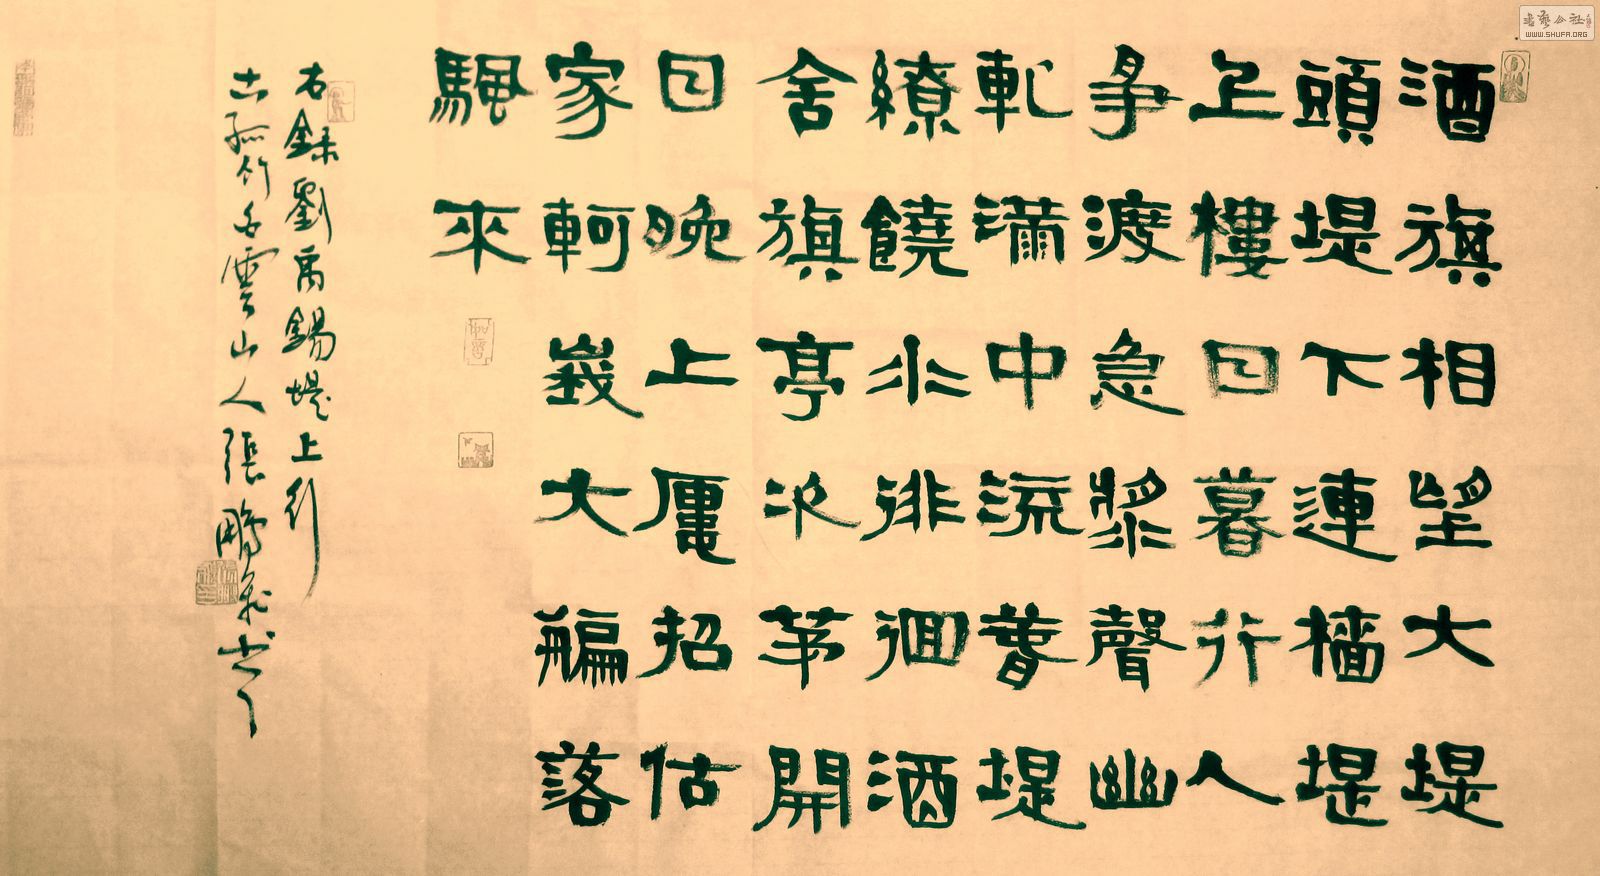 酒旗相望大堤
頭堤下連檣堤
上樓日暮行人
爭渡急槳聲幽
軋滿中流萅堤
繚饒水徘徊酒
舍旗亭次苐開
日晚上招估
家軻峩大艑落
颿來
右錄劉禹錫堤上行
古孤竹白雲山人張鵬飛書
書藝公社
WWW.SHUFA.ORG